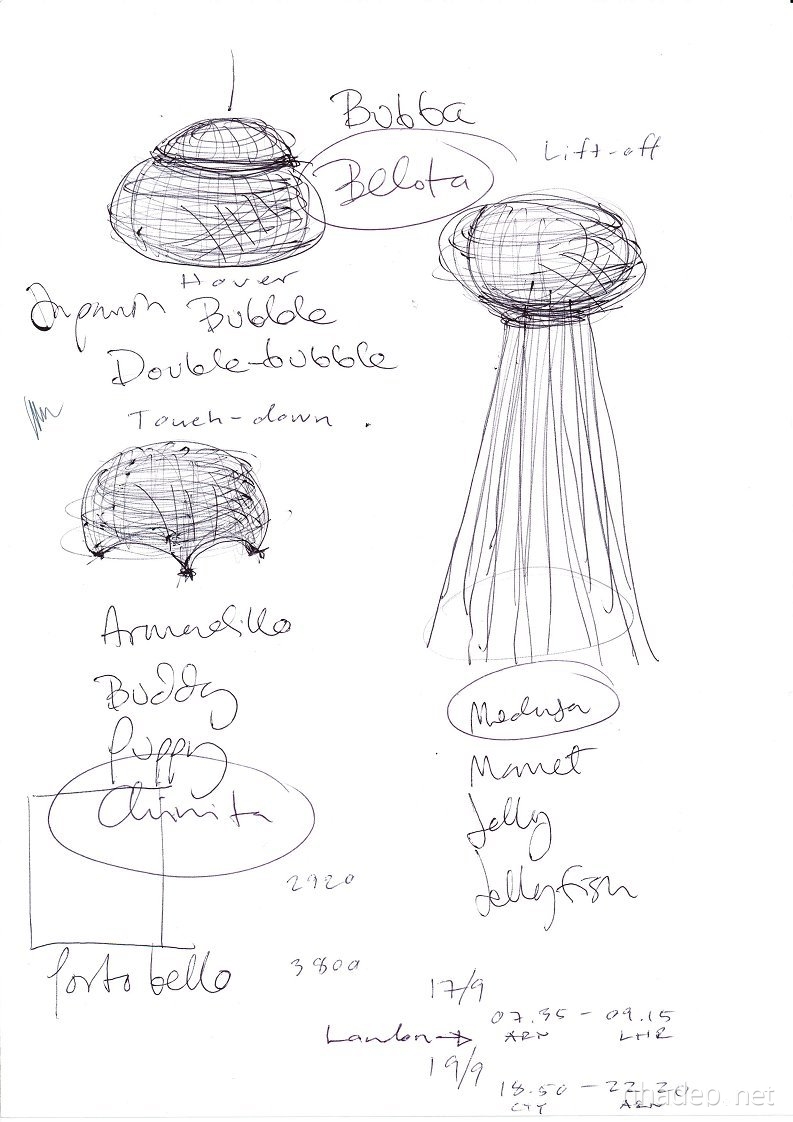 Bubba
Belota
Lift-off
Hover
Bubble
Double-bubble
Touch-down .
Armadillo
Buddy
Puppy
Chinita
2920
Portobello
3800
Medusa
Jelly
Jellyfish
17/9
London→
07.35 - 09.15
ARN LHR
19/9
18.50 - 22.20
CTY ARN
nhadep net